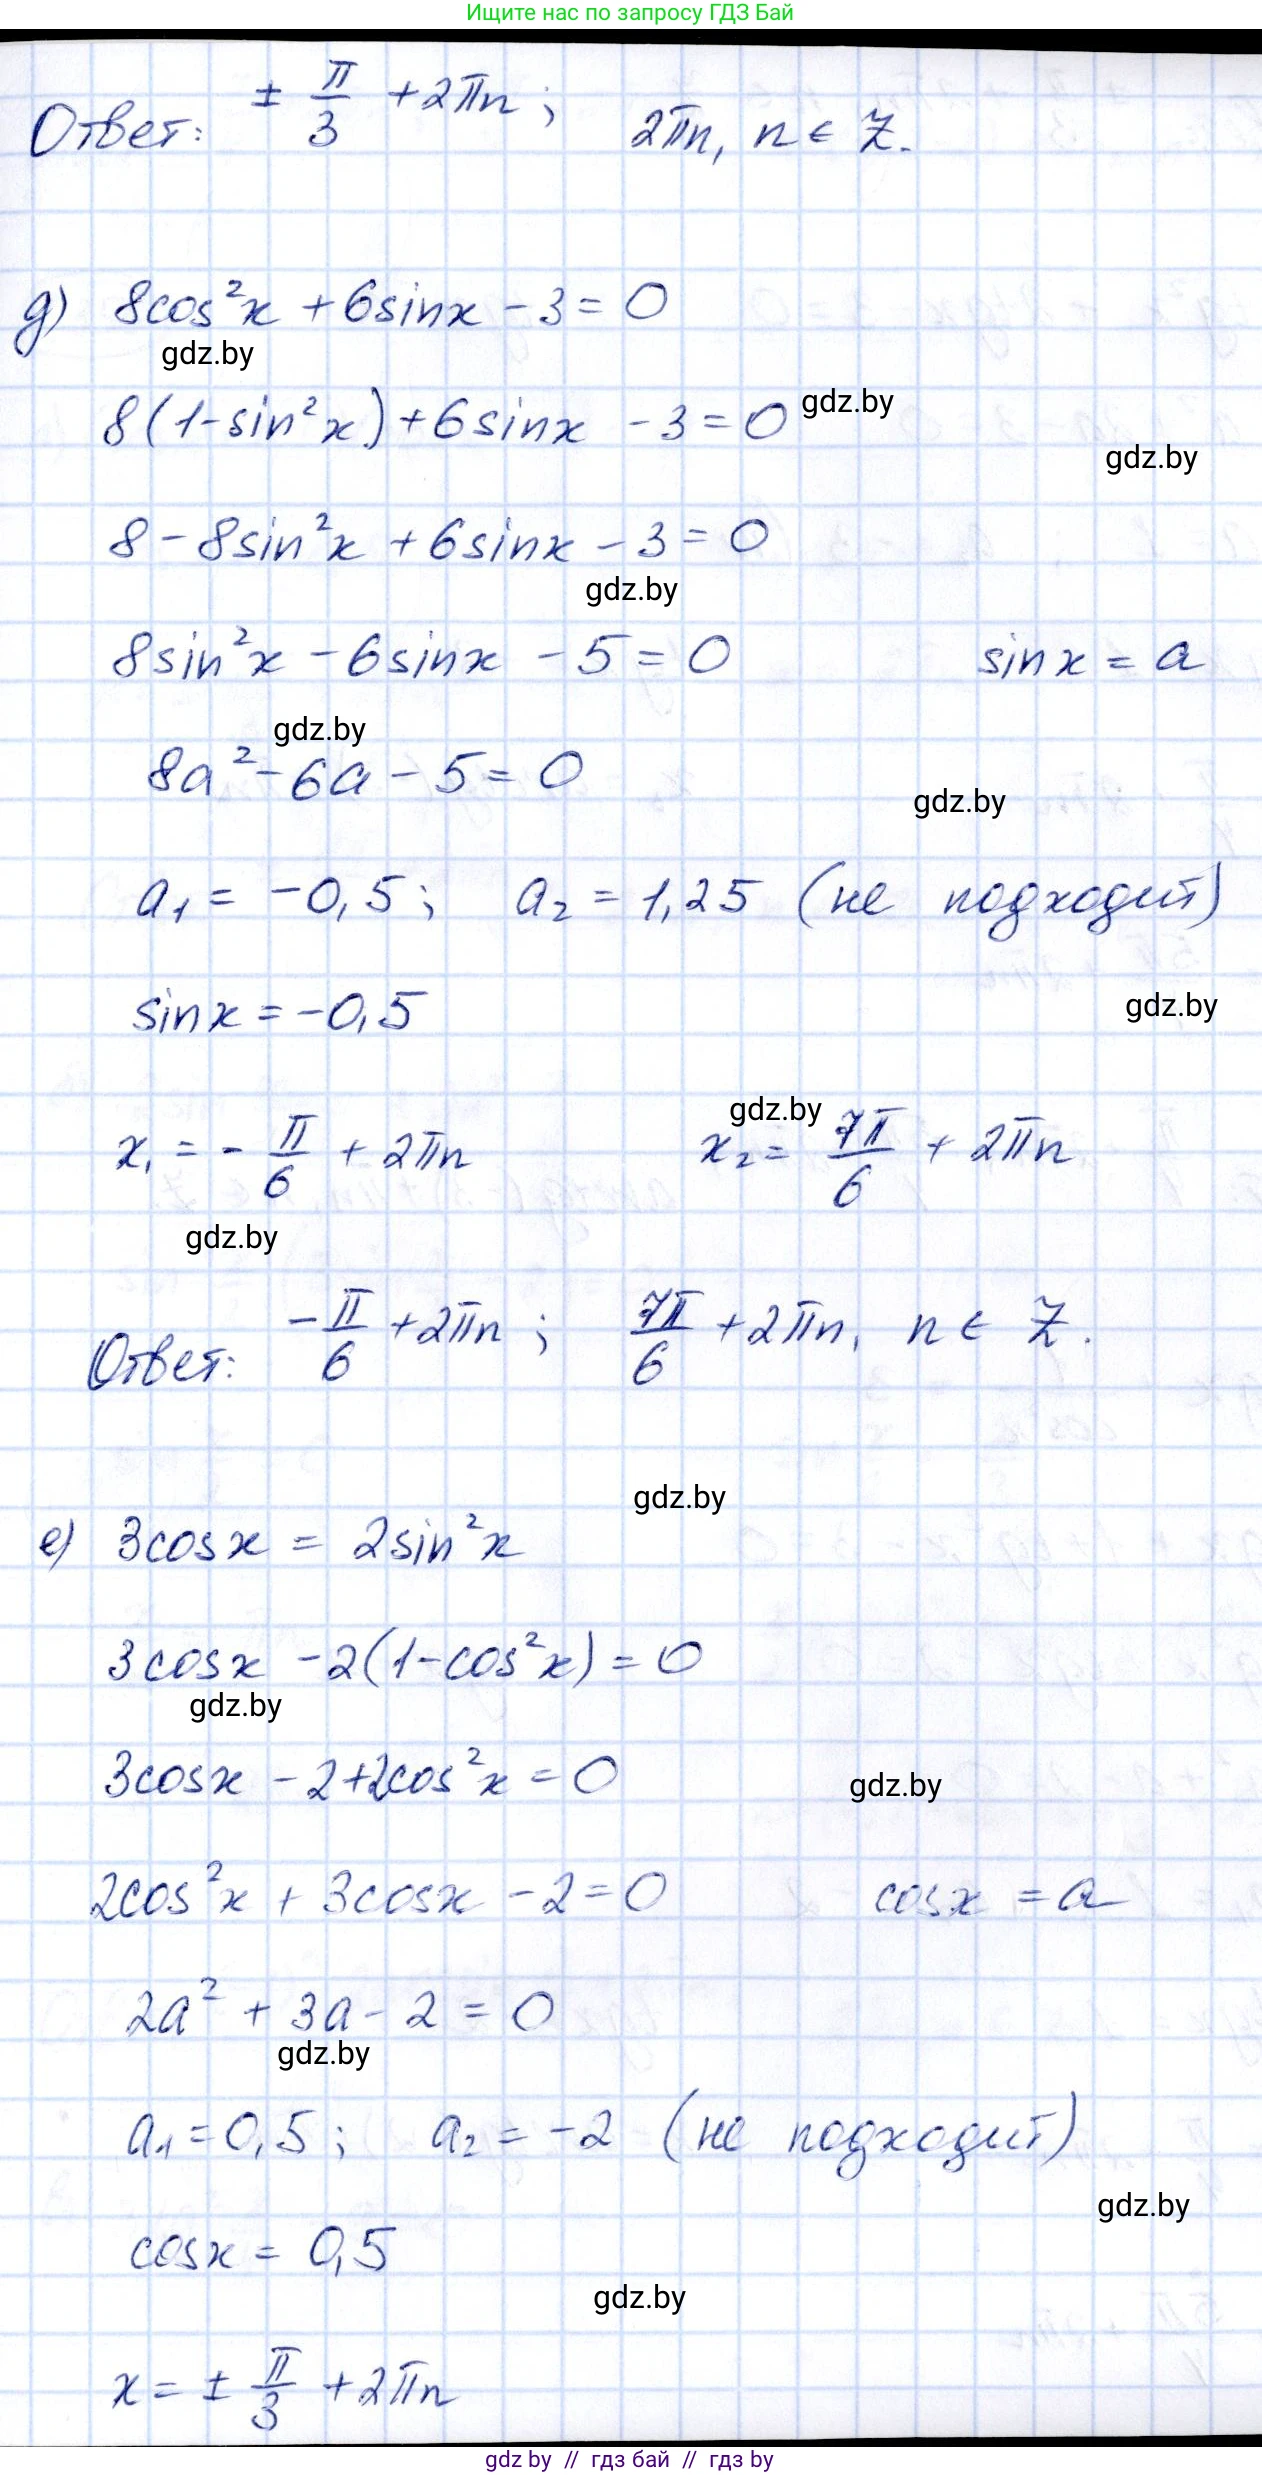 Ищите нас по запросу ГДЗ Бай
Ответ: ± π/3 + 2πn ; 2πn, n ∈ Z.
д) 8cos²x + 6sinx - 3 = 0
gdz.by
8(1-sin²x) + 6sinx - 3 = 0 gdz.by
gdz.by
8 - 8sin²x + 6sinx - 3 = 0
gdz.by
8sin²x - 6sinx - 5 = 0 sinx = a
gdz.by
8a² - 6a - 5 = 0
gdz.by
a₁ = -0,5 ; a₂ = 1,25 (не подходит)
sinx = -0,5
gdz.by
gdz.by
x₁ = - π/6 + 2πn x₂ = 7π/6 + 2πn
gdz.by
Ответ: -π/6 + 2πn ; 7π/6 + 2πn, n ∈ Z.
gdz.by
е) 3cosx = 2sin²x
3cosx - 2(1-cos²x) = 0
gdz.by
3cosx - 2 + 2cos²x = 0
gdz.by
2cos²x + 3cosx - 2 = 0 cosx = a
2a² + 3a - 2 = 0
gdz.by
a₁ = 0,5 ; a₂ = -2 (не подходит)
gdz.by
cosx = 0,5
gdz.by
x = ± π/3 + 2πn
gdz by // гдз бай // гдз by